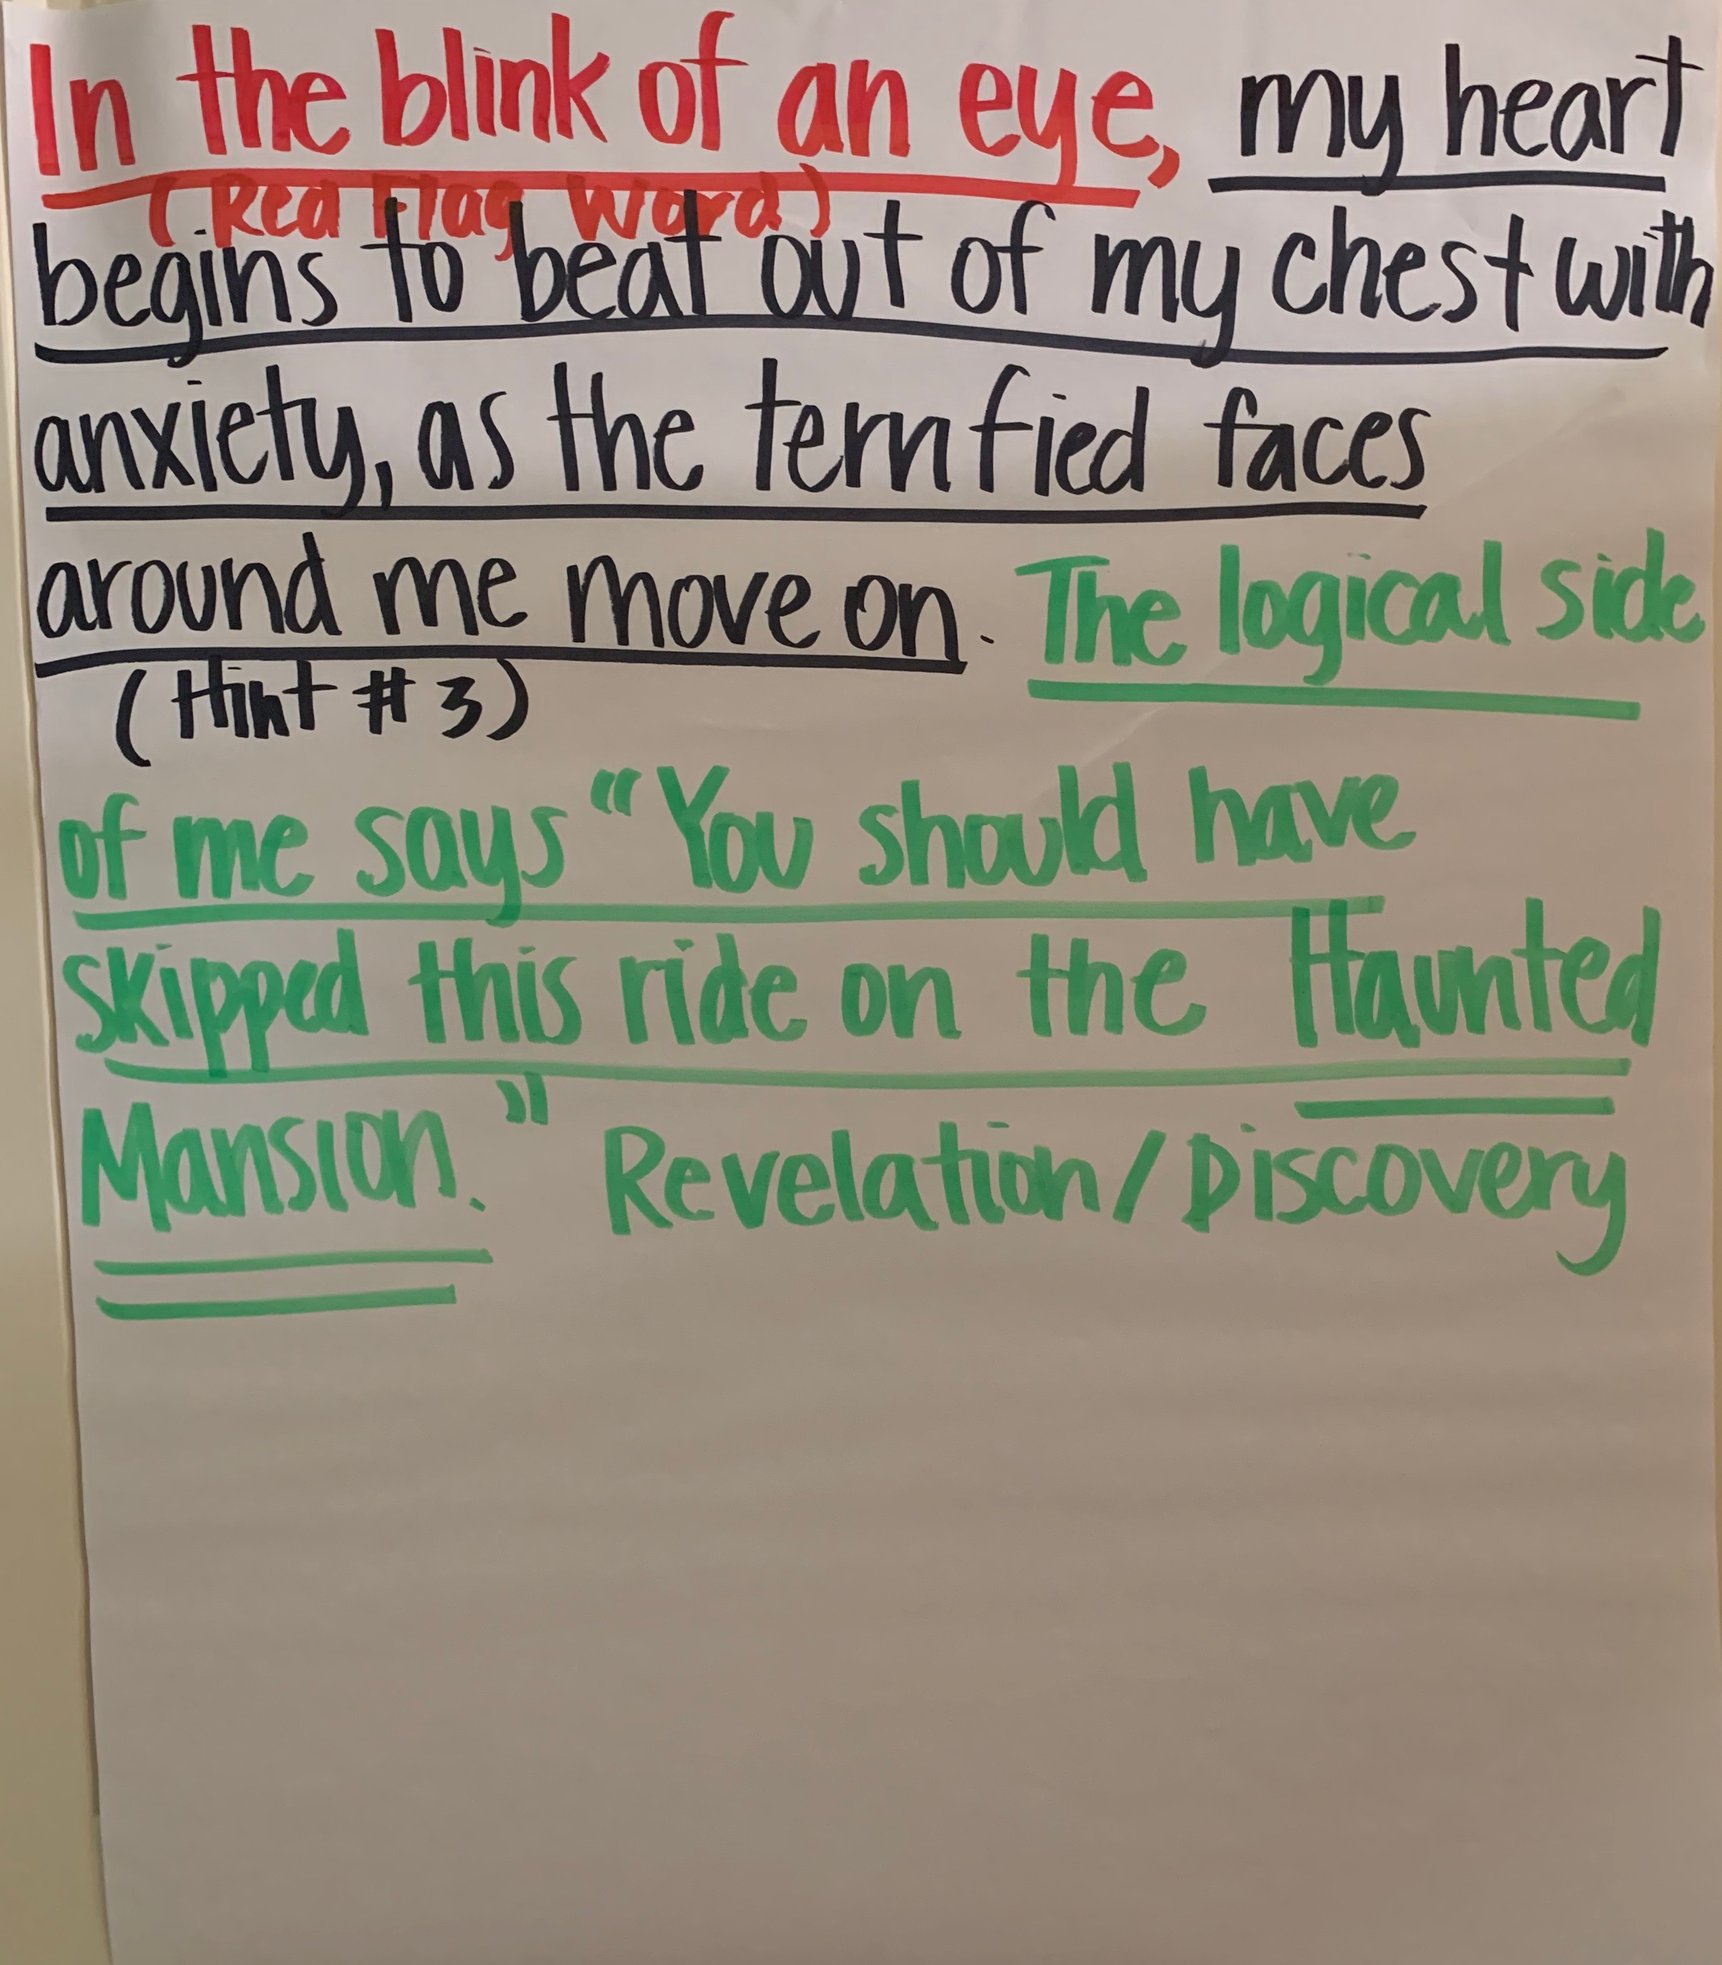 In the blink of an eye, my heart
(Red Flag Word)
begins to beat out of my chest with
anxiety, as the terrified faces
around me move on. The logical side
(Hint #3)
of me says "You should have
skipped this ride on the Haunted
Mansion." Revelation/Discovery